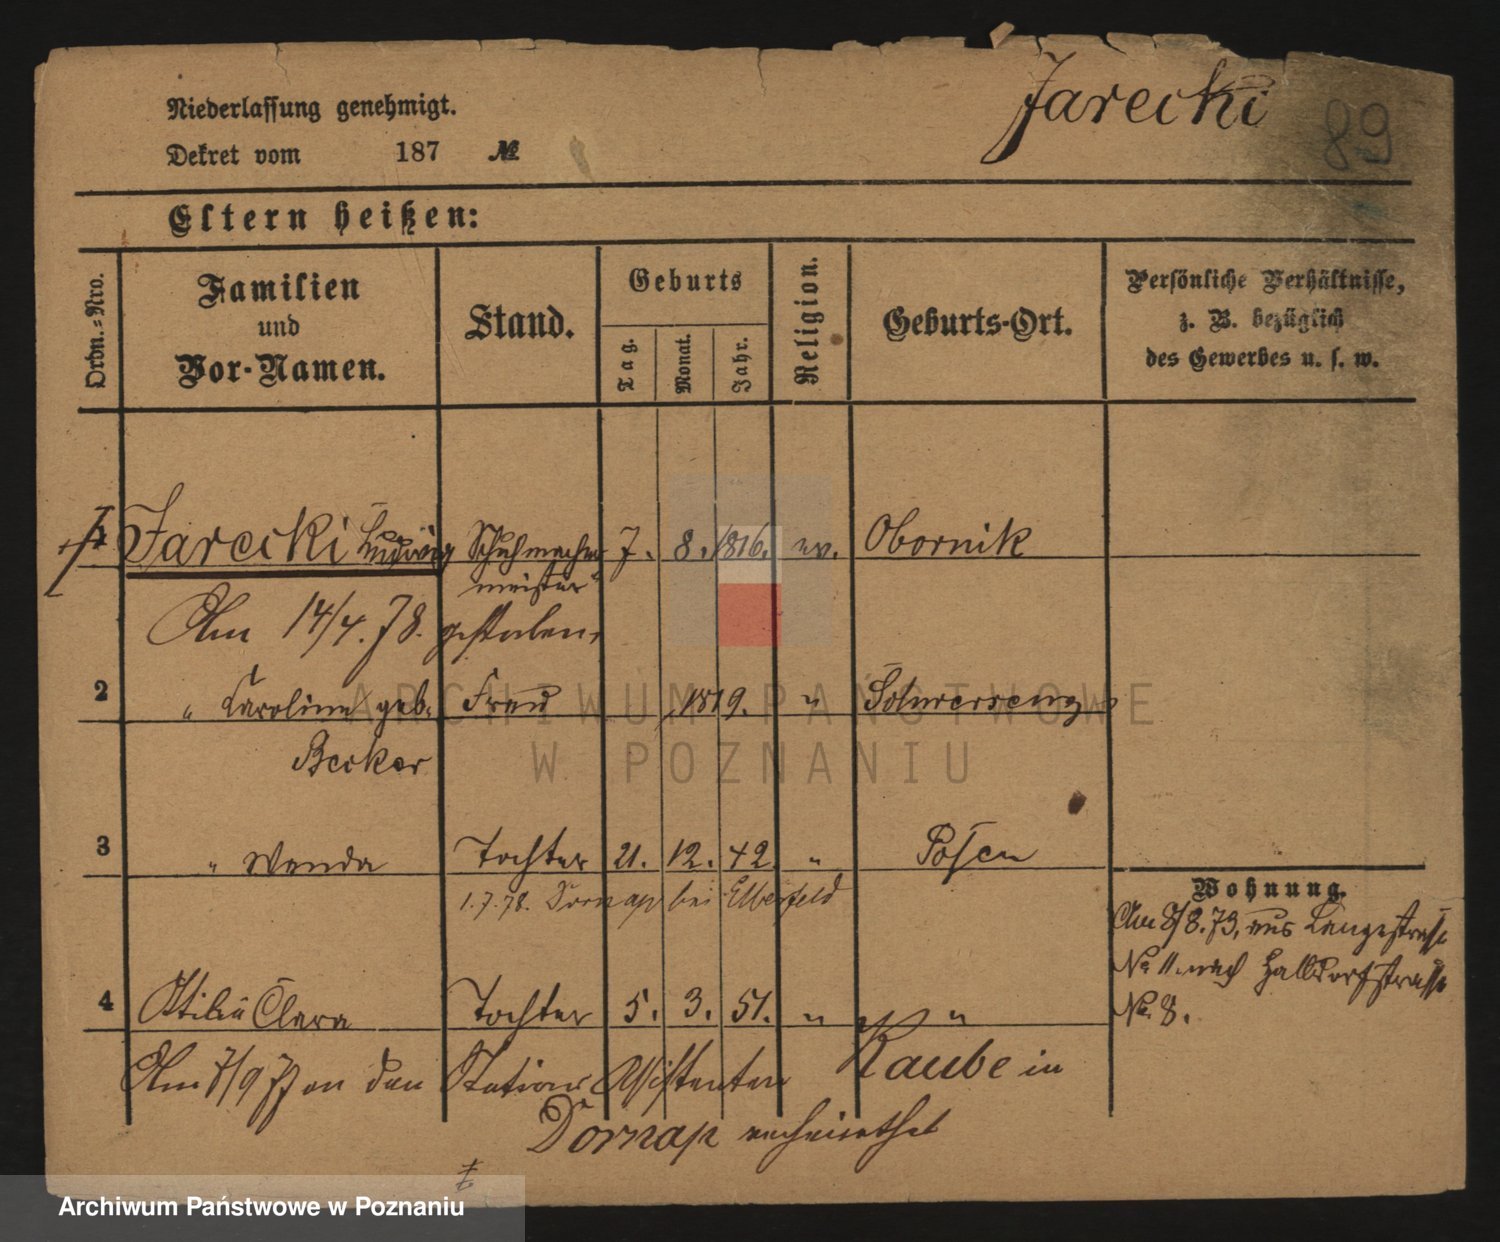 Jarecki
89
Niederlassung genehmigt.
Dekret vom 187 №
Eltern heißen:
Ordn.=Nro.
Familien und Vor-Namen.
Stand.
Geburts
Tag.
Monat.
Jahr.
Religion.
Geburts-Ort.
Persönliche Verhältnisse,
z. B. bezüglich
des Gewerbes u. s. w.
1 Jarecki Ludwig Schuhmacher 7. 8. 1816. ev. Obornik
meister
Am 14/4. 78. gestorben.
2 " Caroline geb. Frau 1819. " Schwersenz
Becker
3 " Wanda Tochter 21. 12. 42. " Posen
1.7.78. Dornap bei Elberfeld
Wohnung.
Am 8/8. 73, aus Langestrasse
No 11. nach Halbdorfstrasse
No. 8.
4 Ottilie Clara Tochter 5. 3. 51. " "
Am 7/9 77 an den Stations Assistenten Raube in
Dornap verheirathet
ARCHIWUM PAŃSTWOWE
W POZNANIU
Archiwum Państwowe w Poznaniu